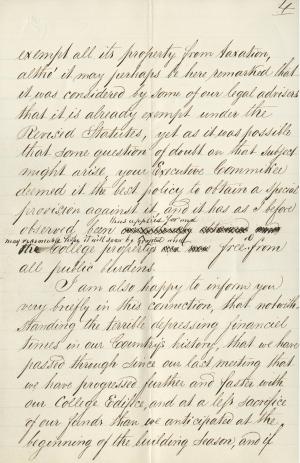 4
exempt all its property from taxation,
altho' it may perhaps be here remarked that
it was considered by some of our legal advisers
that it is already exempt under the
Revised Statutes, yet as it was possible
that some question of doubt on that subject
might arise, your Executive Committee
deemed it the best policy to obtain a special
provision against it, and it has as I before
observed been
thus applied for and
may reasonably hope it will soon be granted and
the College property free from
all public burdens.
I am also happy to inform you
very briefly in this connection, that notwith
standing the terrible depressing financiel
times in our Country's history, that we have
passed through since our last meeting that
we have progressed further and faster with
our College Edifice, and at a less sacrifice
of our funds than we anticipated at the
beginning of the building season, and if